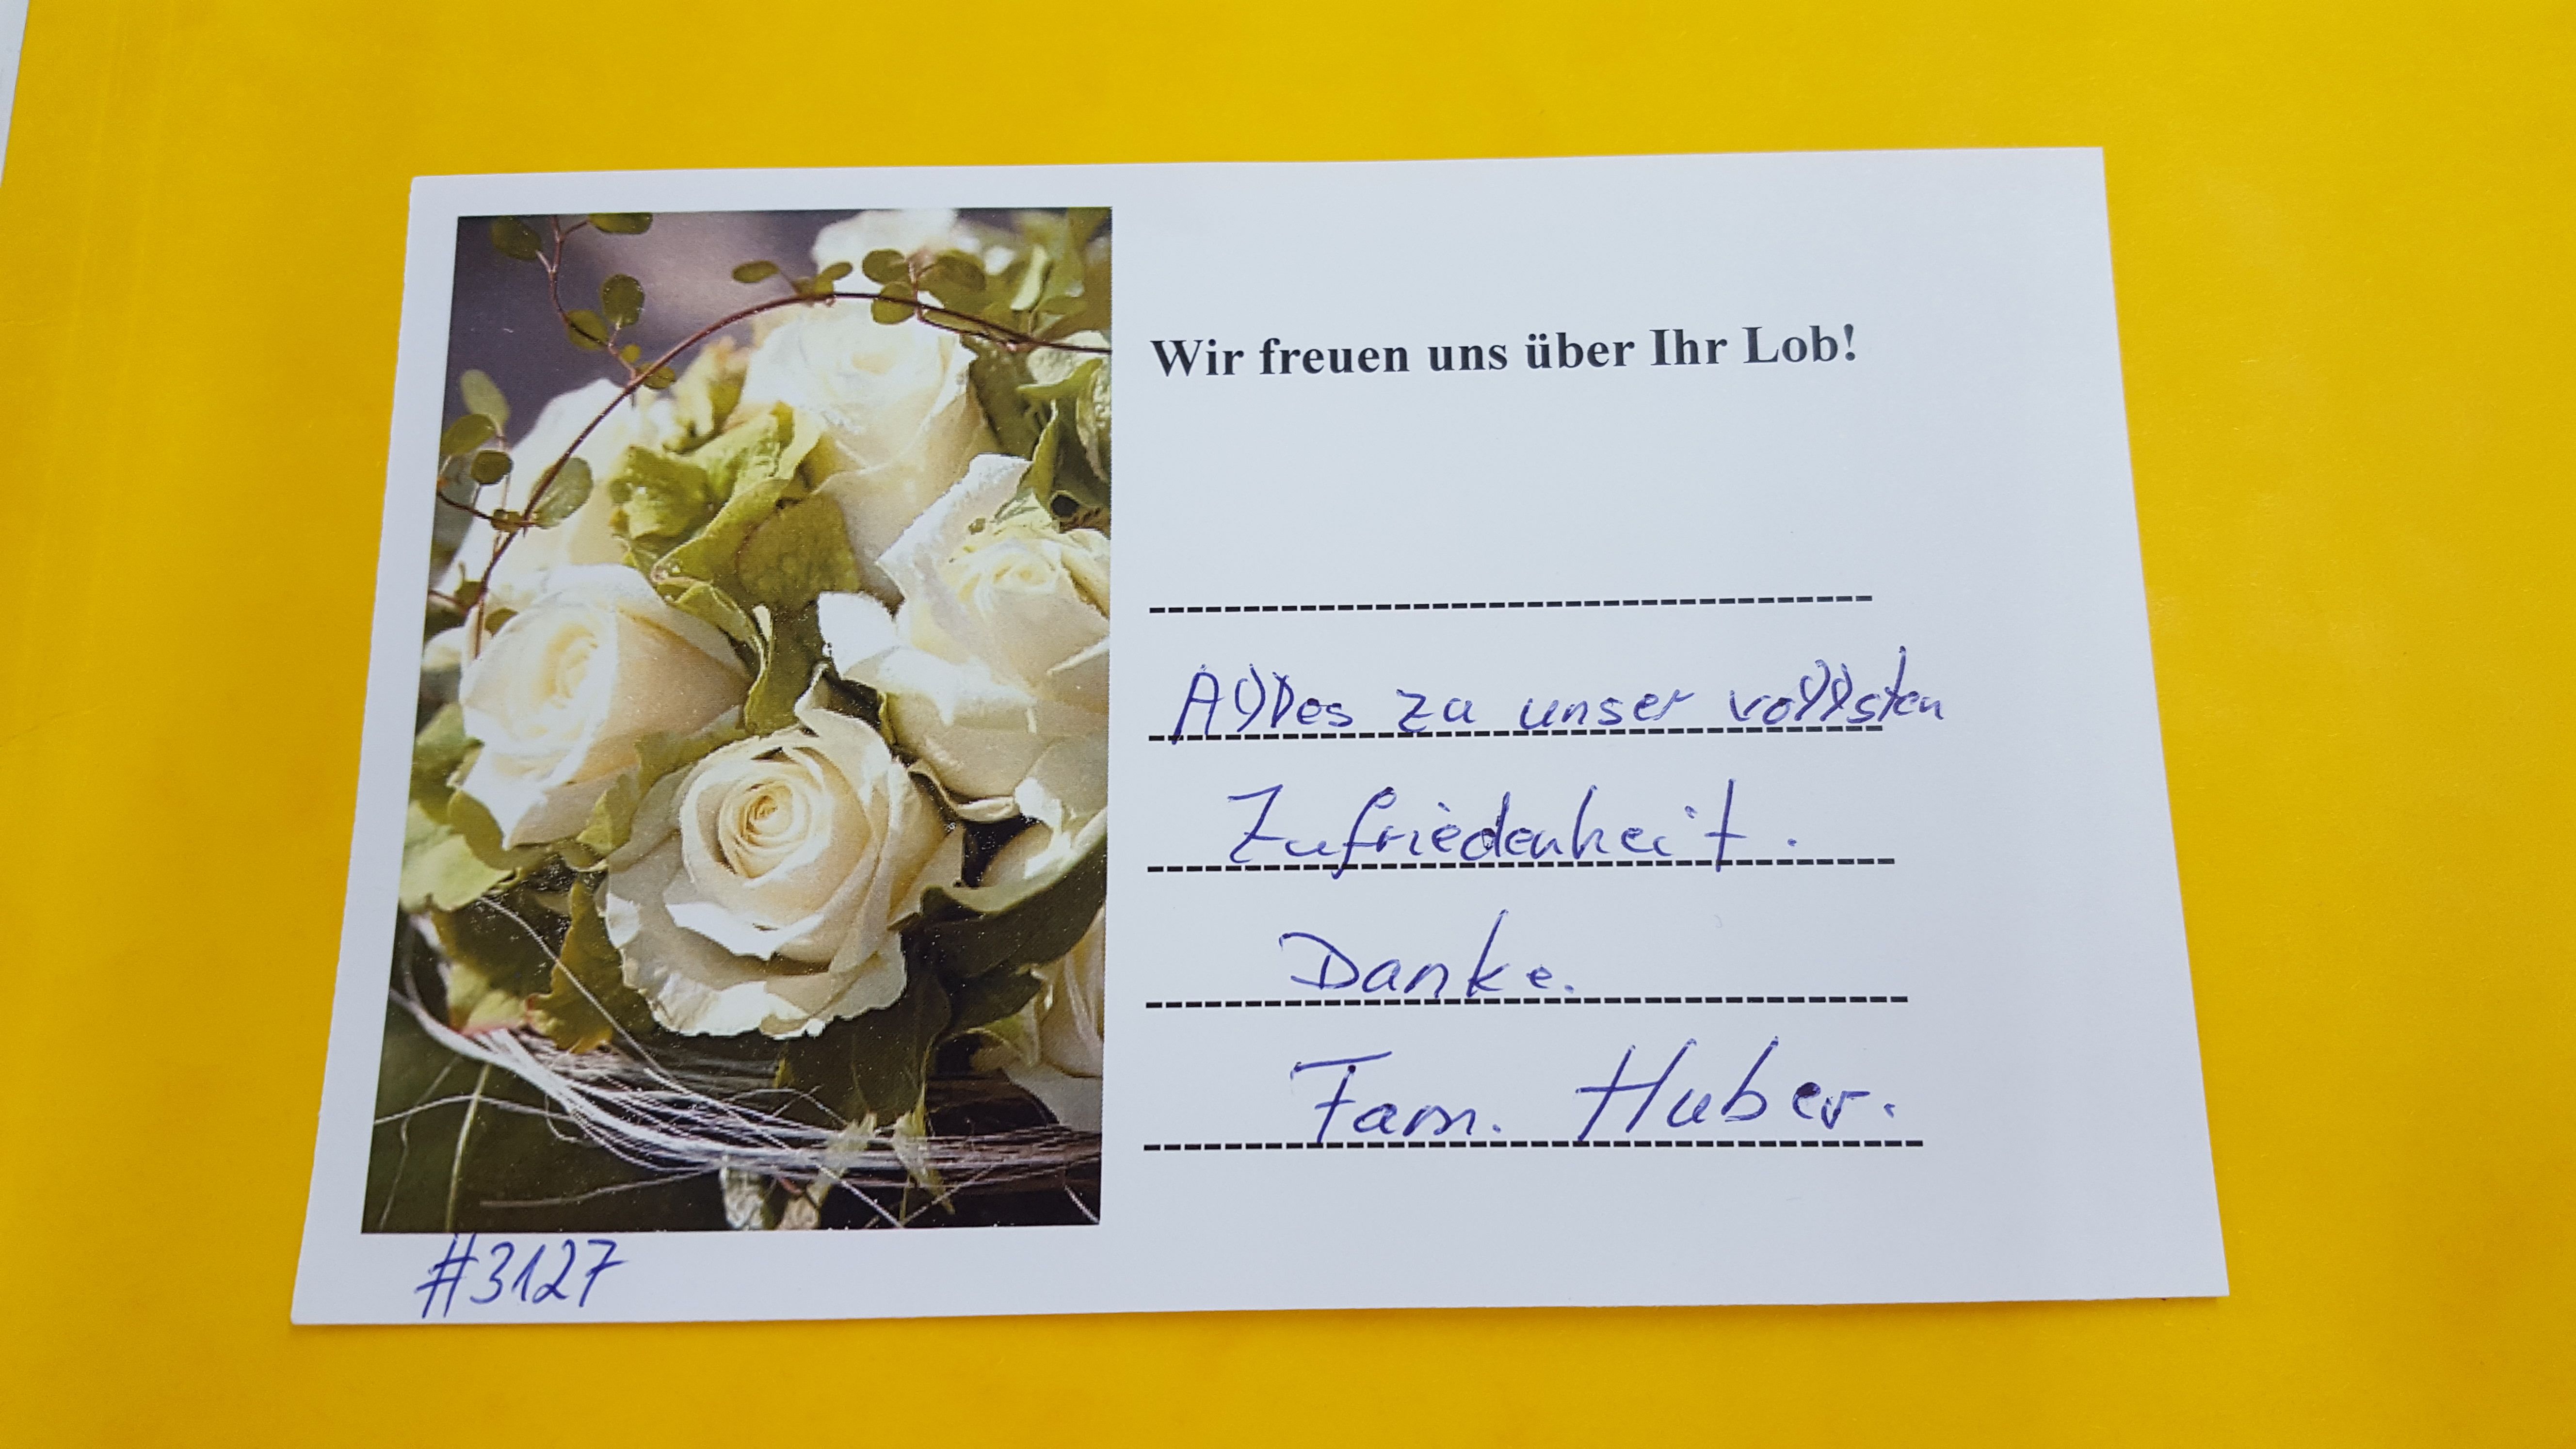 Wir freuen uns über Ihr Lob!
Alles zu unser vollsten
Zufriedenheit.
Danke.
Fam. Huber.
#3127